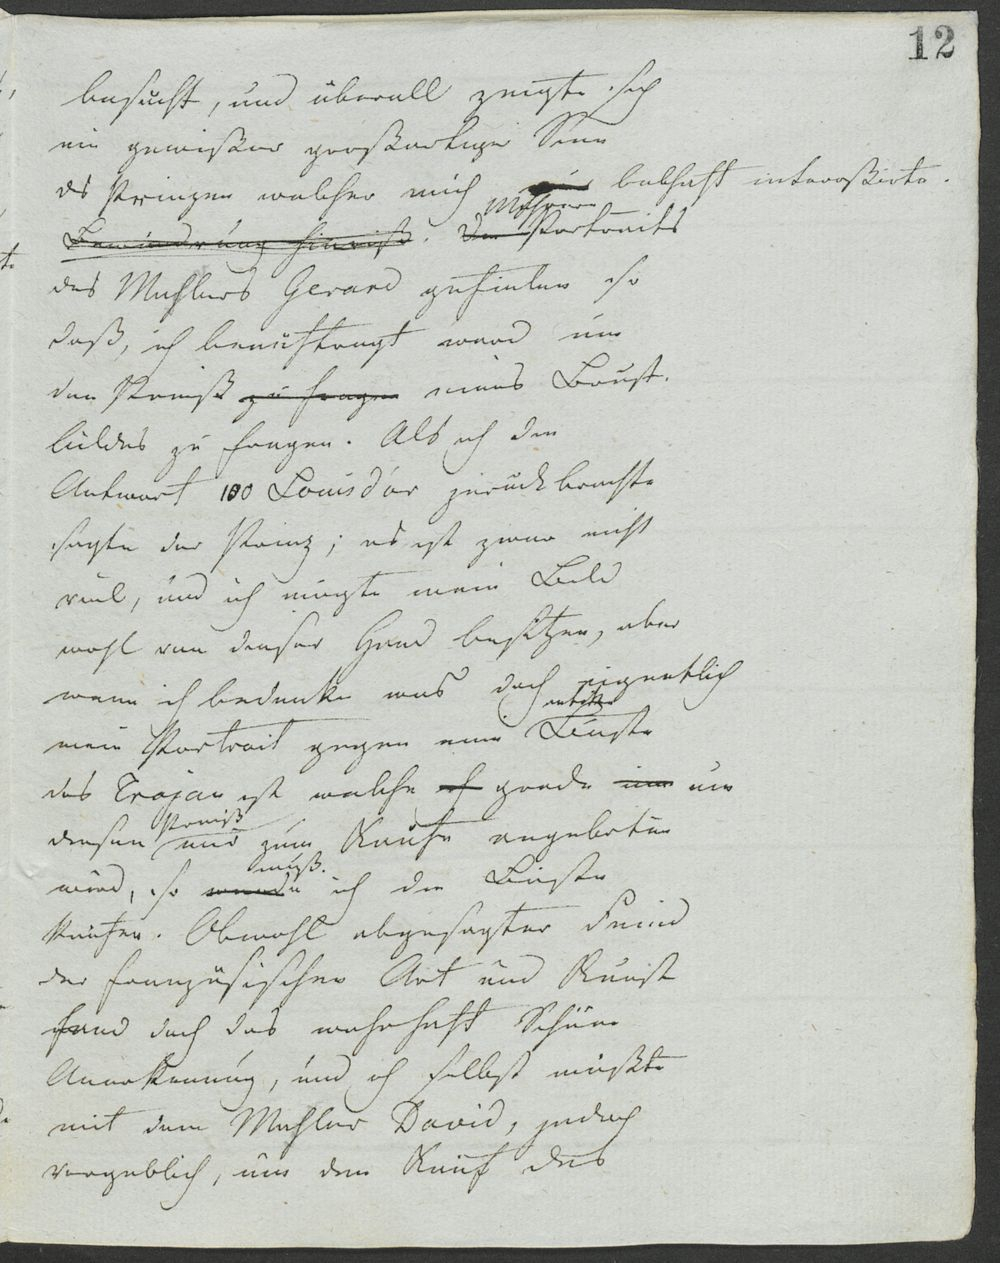 12
besucht, und überall zeigte sich
ein gewißer großartiger Sinn
des Prinzen welcher mich lebhaft interessirte.
Bewunderung hinriß. Die Mehrere Portraits
des Mahlers Gerard gefielen so
daß, ich beauftragt ward um
den Preiß zu fragen eines Brust-
bildes zu fragen. Als ich die
Antwort 100 Louisd'or zurückbrachte
sagte der Prinz; es ist zwar nicht
viel, und ich mögte mein Bild
wohl von dieser Hand besitzen, aber
wenn ich bedenke was doch eigentlich
mein Portrait gegen eine antike Büste
des Trajan ist welche grade um
diesen Preiß mir zum Kaufe angeboten
wird, so werde muß ich die Büste
kaufen. Obwohl abgesagter Feind
der französischen Art und Kunst
fand doch das wahrhaft Schöne
Anerkennung, und ich selbst mußte
mit dem Mahler David, jedoch
vergeblich, um den Kauf des